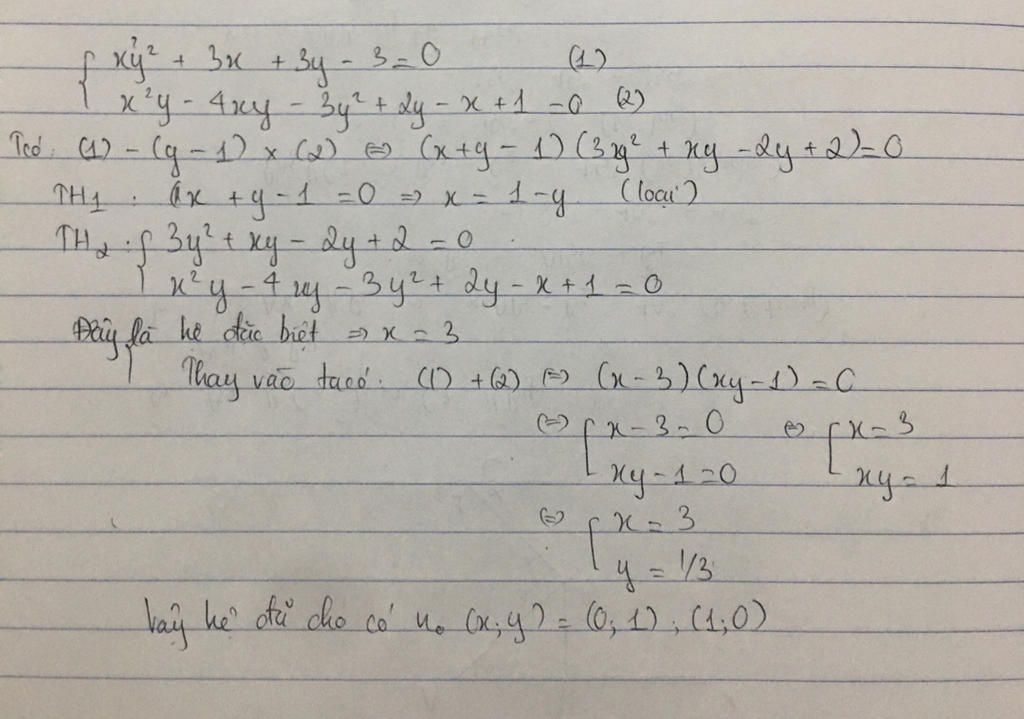 { xy² + 3x + 3y - 3 = 0 (1)
x²y - 4xy - 3y² + 2y - x + 1 = 0 (2)
Tcó: (1) - (y - 1) × (2) ⇔ (x + y - 1)(3y² + xy - 2y + 2) = 0
TH1 : x + y - 1 = 0 ⇒ x = 1 - y (loại)
TH2 : { 3y² + xy - 2y + 2 = 0
x²y - 4xy - 3y² + 2y - x + 1 = 0
Đây là hệ đặc biệt ⇒ x = 3
Thay vào ta có: (1) + (2) ⇔ (x - 3)(xy - 1) = 0
⇔ [ x - 3 = 0 ⇔ [ x = 3
xy - 1 = 0 xy = 1
⇔ [ x = 3
y = 1/3
Vậy hệ đã cho có no (x; y) = (0; 1); (1; 0)